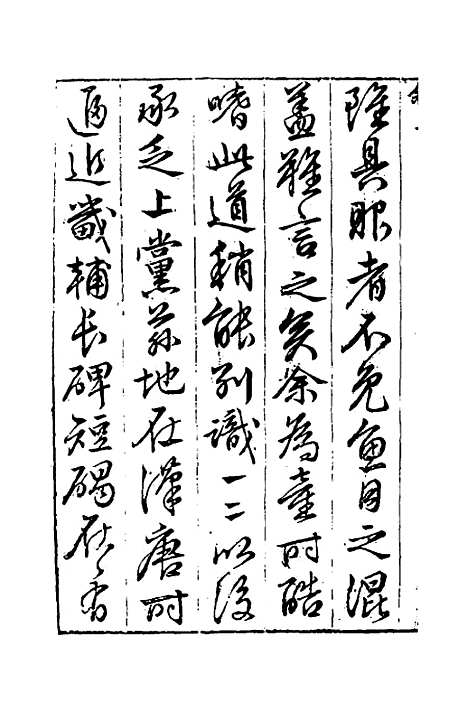 雖具眼者不免魚目之混
蓋難言之矣余為童時酷
嗜此道稍能別識一二以後
承乏上黨茲地在漢唐時
逼近畿輔長碑短碣在在有